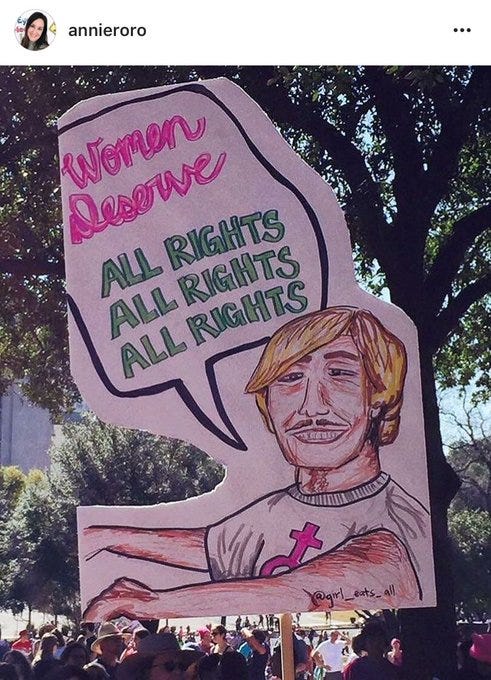 annieroro
Women
Deserve
ALL RIGHTS
ALL RIGHTS
ALL RIGHTS
@girl_eats_all